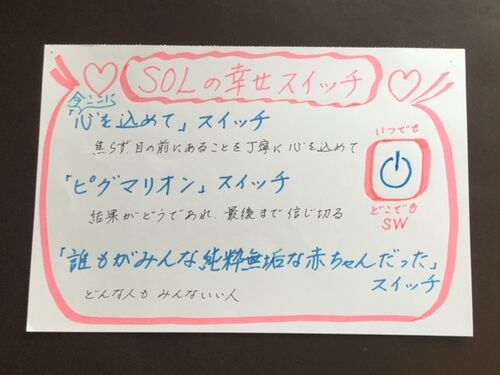 SOLの幸せスイッチ
今ここに
「心を込めて」スイッチ
焦らず目の前にあることを丁寧に心を込めて
いつでも
どこでも
SW
「ピグマリオン」スイッチ
結果がどうであれ、最後まで信じ切る
「誰もがみんな純粋無垢な赤ちゃんだった」
スイッチ
どんな人も みんないい人